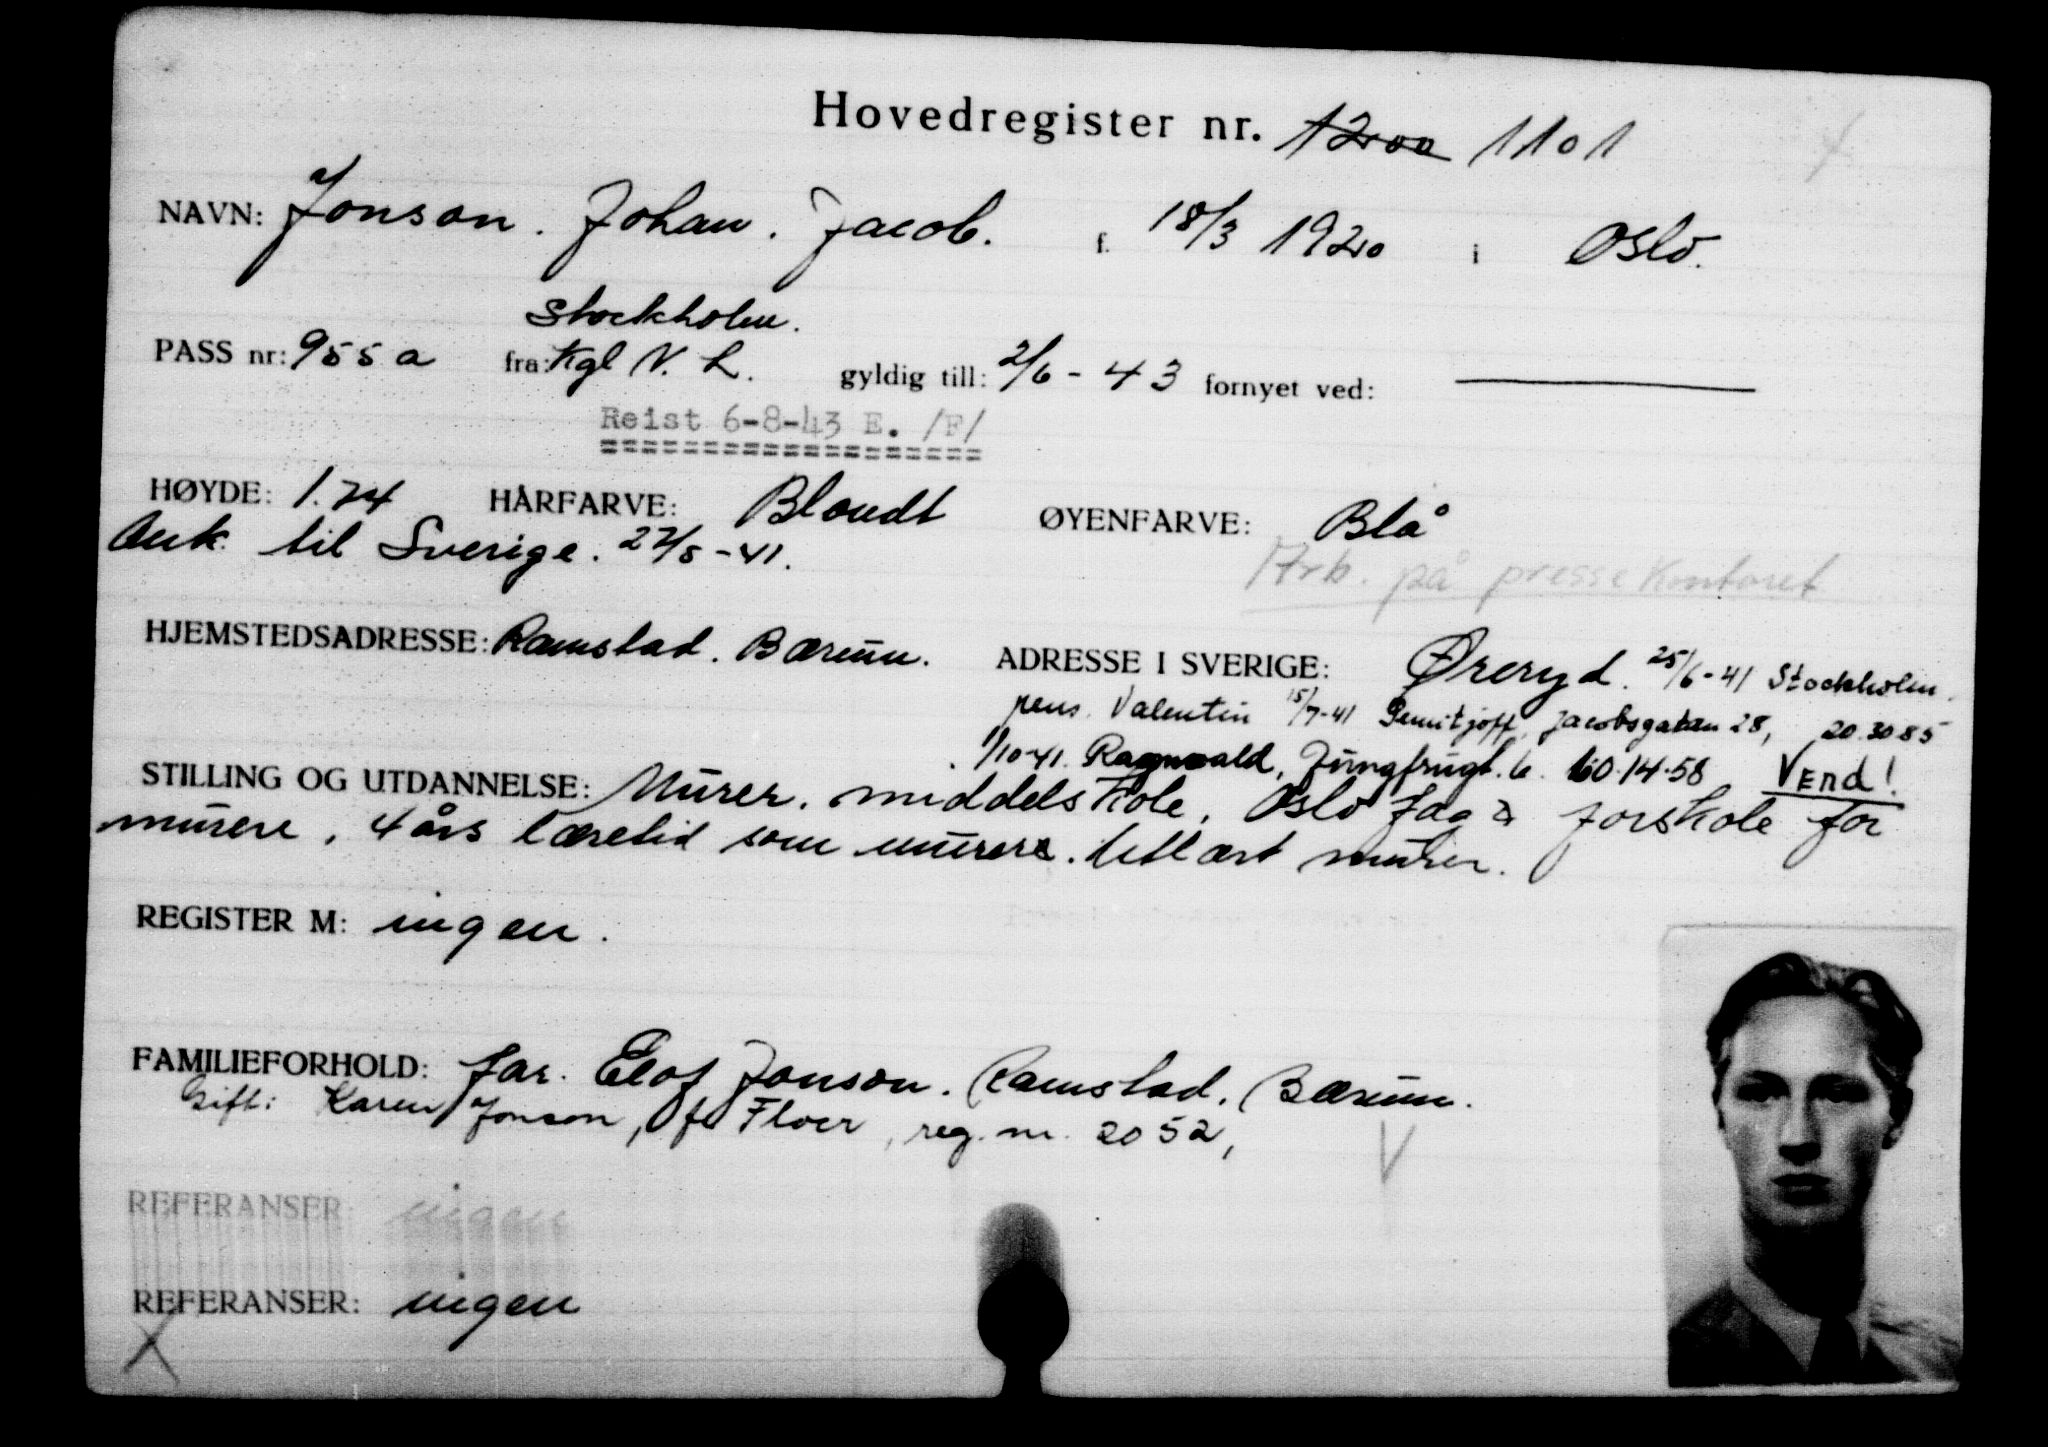 Hovedregister nr. 1200 1101
NAVN: Jonson. Johan. Jacob. f. 18/3 1920 i Oslo.
Stockholm.
PASS nr: 955 a fra: Kgl N. L. gyldig till: 2/6 - 43 fornyet ved:
Reist 6-8-43 E. /F/
HØYDE: 1.74 HÅRFARVE: Blondt ØYENFARVE: Blå
Ank. til Sverige. 27/5-41.
Arb. på pressekontoret
HJEMSTEDSADRESSE: Ramstad. Bærum. ADRESSE I SVERIGE: Øreryd. 25/6-41 Stockholm.
pens. Valentin 15/7-41 Jacobsgatan 28, 20.30 85
1/10-41. Ragnwald, Jungfrugt. 6. 60.14.58 VEnd!
STILLING OG UTDANNELSE: Murer. middelskole, Oslo fag & forskole for
murere, 4 års læretid som murer. Utlært murer.
REGISTER M: ingen.
FAMILIEFORHOLD: far. Elof Jonson. Ramstad. Bærum.
Gift: Karen Jonson, f. Floer, reg. nr. 2052,
V
REFERANSER: ingen
REFERANSER: ingen
X